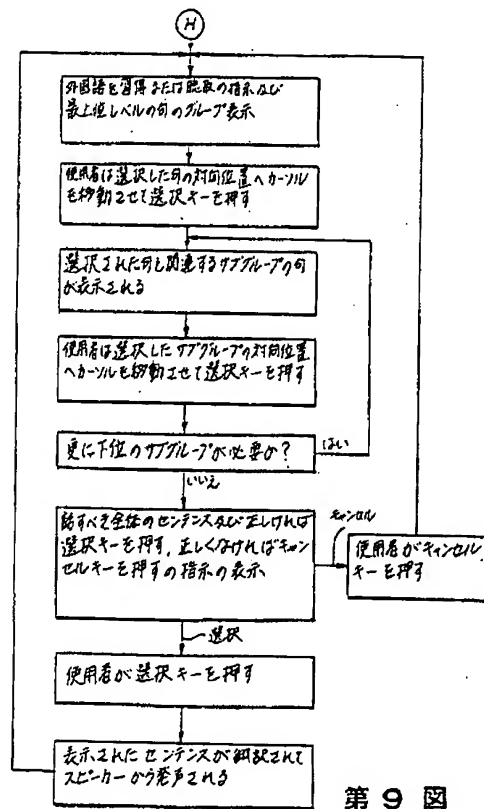 H
外国語を習得または聴取の指示及び
最上位レベルの句のグループ表示
使用者は選択した句の対向位置へカーソル
を移動させて選択キーを押す
選択された句と関連するサブグループの句
が表示される
使用者は選択したサブグループの対向位置
へカーソルを移動させて選択キーを押す
更に下位のサブグループが必要か?
はい
いいえ
話すべき全体のセンテンス及び正しければ
選択キーを押す、正しくなければキャン
セルキーを押すの指示の表示
キャンセル
使用者がキャンセル
キーを押す
選択
使用者が選択キーを押す
表示されたセンテンスが翻訳されて
スピーカーから発声される
第9図